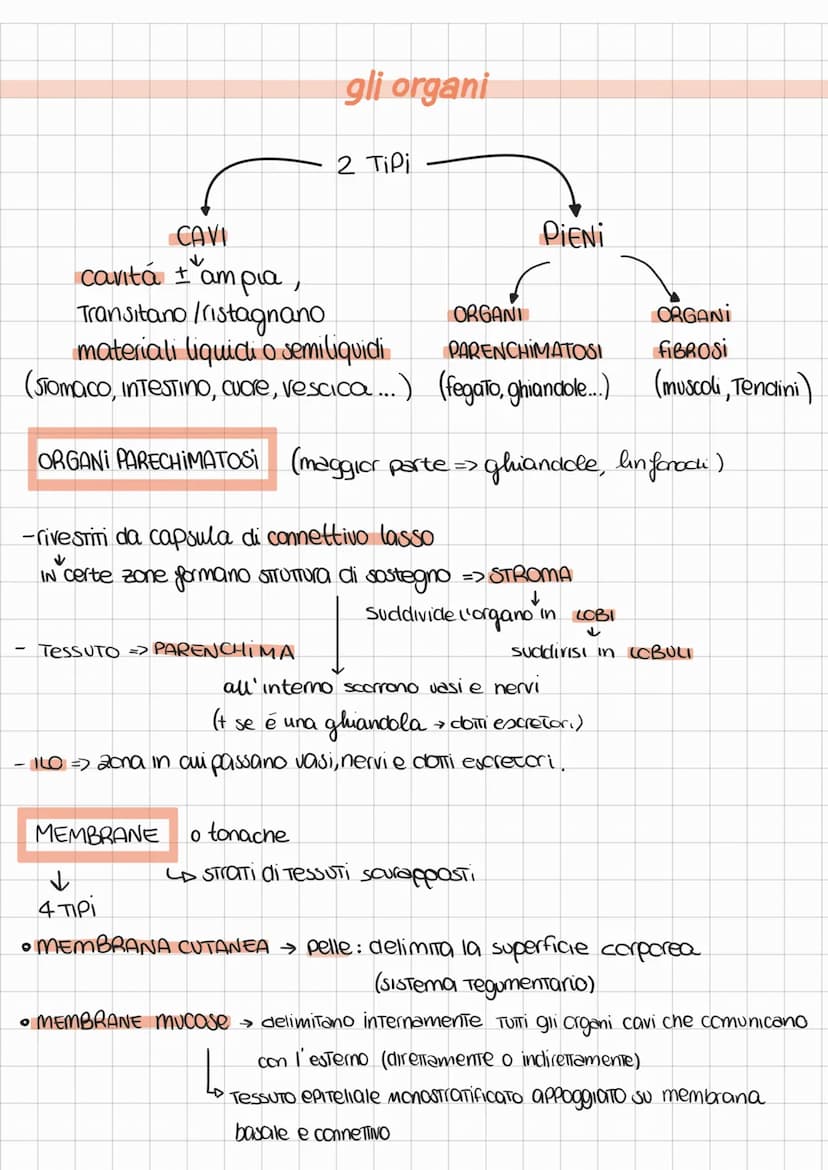 gli organi
2 TiPi
CAVI
PiENi
cavitá ± ampia,
Transitano / ristagnano
materiali liquidi o semiliquidi
(stomaco, intestino, cuore, vescica...)
ORGANI
PARENCHIMATOSI
(fegato, ghiandole...)
ORGANI
FIBROSI
(muscoli, Tendini)
ORGANI PARECHIMATOSI (maggior parte => ghiandole, linfonodi)
- rivestiti da capsula di connettivo lasso
IN certe zone formano struttura di sostegno => STROMA
suddivide l'organo in LOBI
- TESSUTO => PARENCHIMA
suddivisi in LOBULI
all'interno scorrono vasi e nervi
(+ se é una ghiandola → dotti escretori)
- ILO => zona in cui passano vasi, nervi e dotti escretori.
MEMBRANE o tonache
↳ strati di tessuti sovrapposti
4 TIPI
• MEMBRANA CUTANEA → pelle: delimita la superficie corporea
(sistema tegumentario)
• MEMBRANE MUCOSE → delimitano internamente tutti gli organi cavi che comunicano
con l'esterno (direttamente o indirettamente)
↳ tessuto epiteliale monostratificato appoggiato su membrana
basale e connettivo